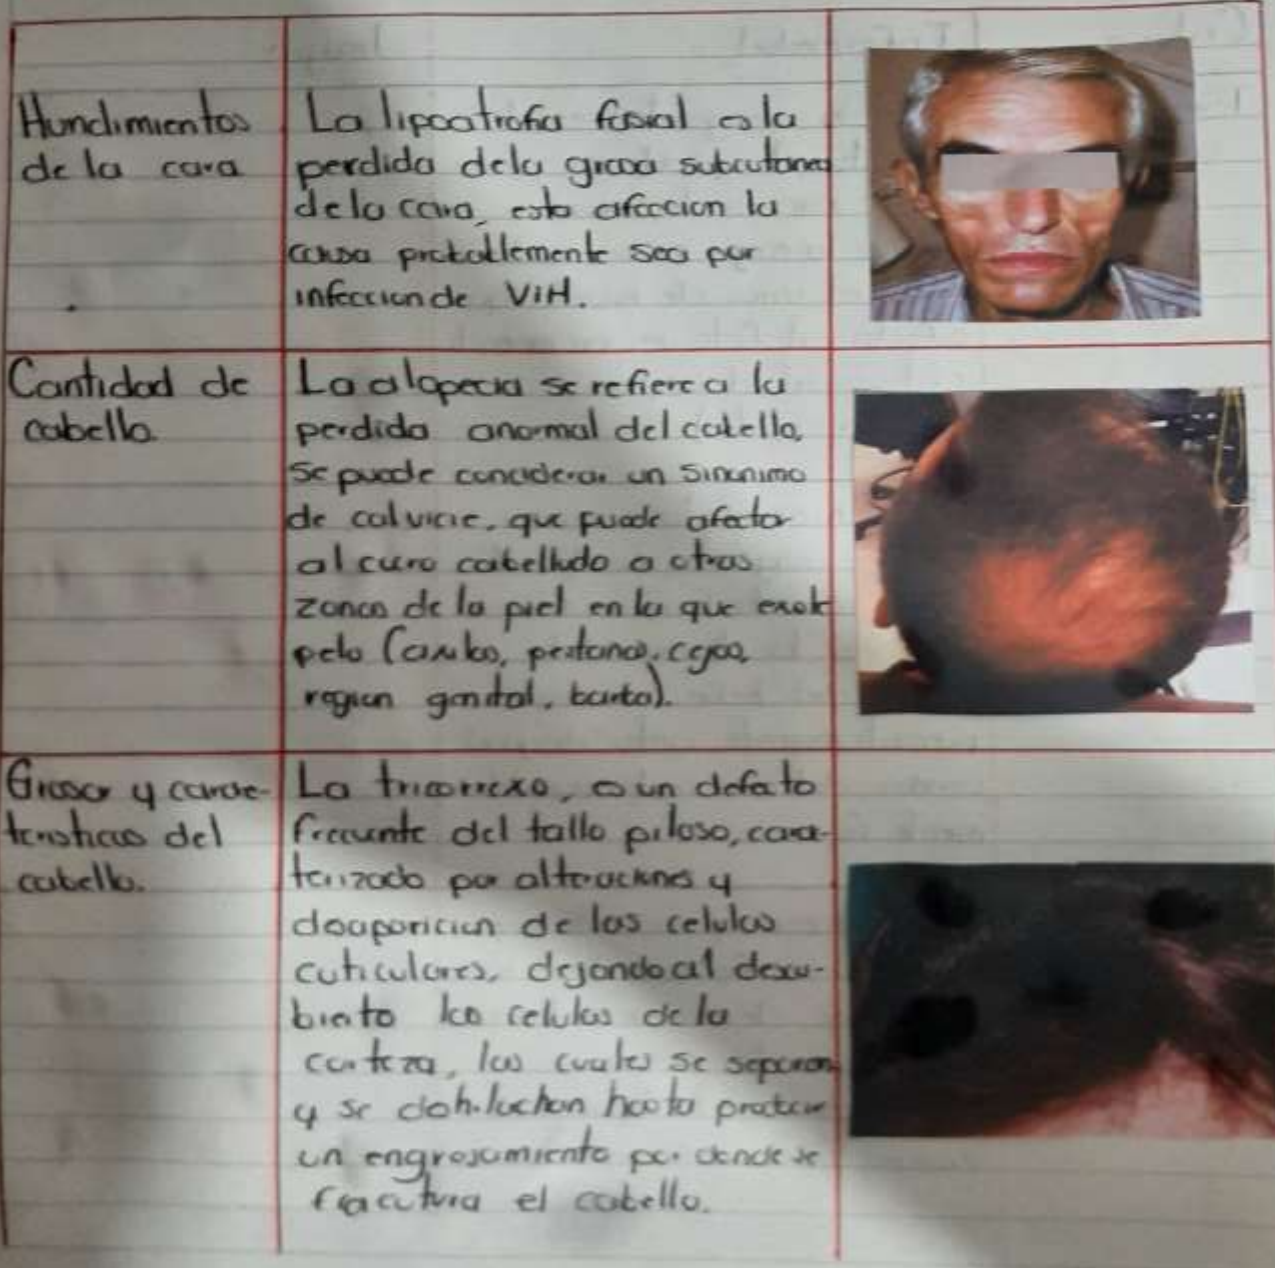 Hundimientos
de la cara
La lipoatrofia fasial es la
perdida dela grasa subcutanea
dela cara, esta afeccion la
causa probablemente sea por
infeccion de ViH.
Cantidad de
cabello
La alopecia se refiere a la
perdida anormal del cabello,
se puede conciderar un sinonimo
de calvicie, que puede afectar
al curo cabelludo o otras
zonas de la piel en la que existe
pelo (axilas, pestanas, cejas,
region genital, barba).
Grosor y carac-
teristicas del
cabello.
La tricorrexo, es un defecto
frecuente del tallo piloso, carac-
terizado por alteraciones y
desaparicion de las celulas
cuticulares, dejando al descu-
bierto las celulas de la
corteza, las cuales se separan
y se deshilachan hasta producir
un engrosamiento por donde se
fracutura el cabello.